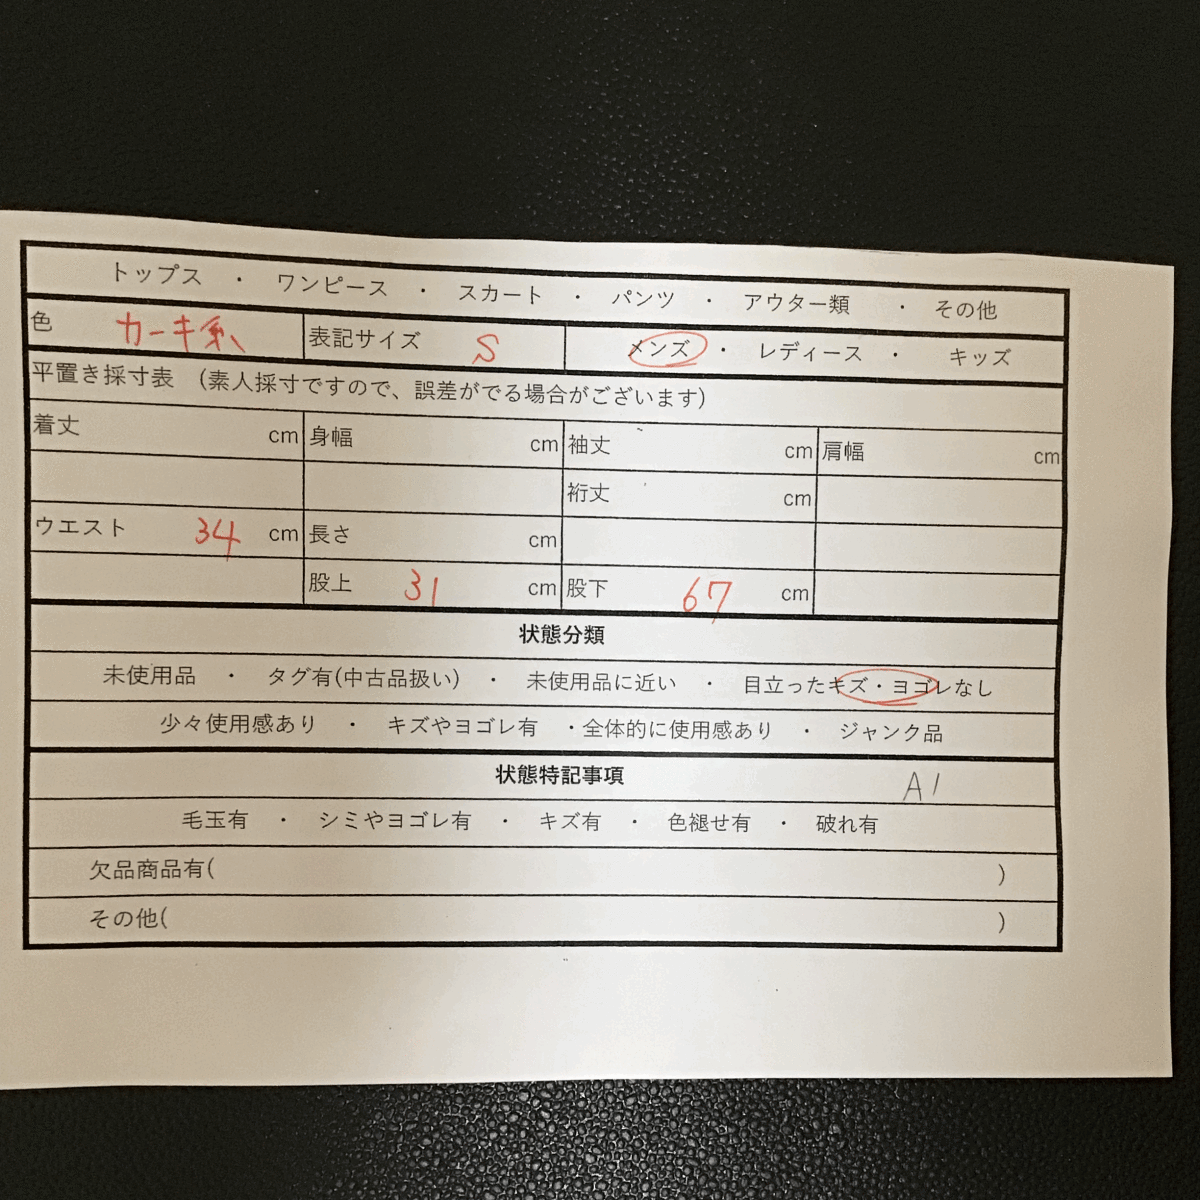 トップス ・ ワンピース ・ スカート ・ パンツ ・ アウター類 ・ その他
色 カーキ系 表記サイズ S メンズ ・ レディース ・ キッズ
平置き採寸表 (素人採寸ですので、誤差がでる場合がございます)
着丈 cm 身幅 cm 袖丈 cm 肩幅 cm
裄丈 cm
ウエスト 34 cm 長さ cm
股上 31 cm 股下 67 cm
状態分類
未使用品 ・ タグ有(中古品扱い) ・ 未使用品に近い ・ 目立ったキズ・ヨゴレなし
少々使用感あり ・ キズやヨゴレ有 ・全体的に使用感あり ・ ジャンク品
状態特記事項 A1
毛玉有 ・ シミやヨゴレ有 ・ キズ有 ・ 色褪せ有 ・ 破れ有
欠品商品有( )
その他( )